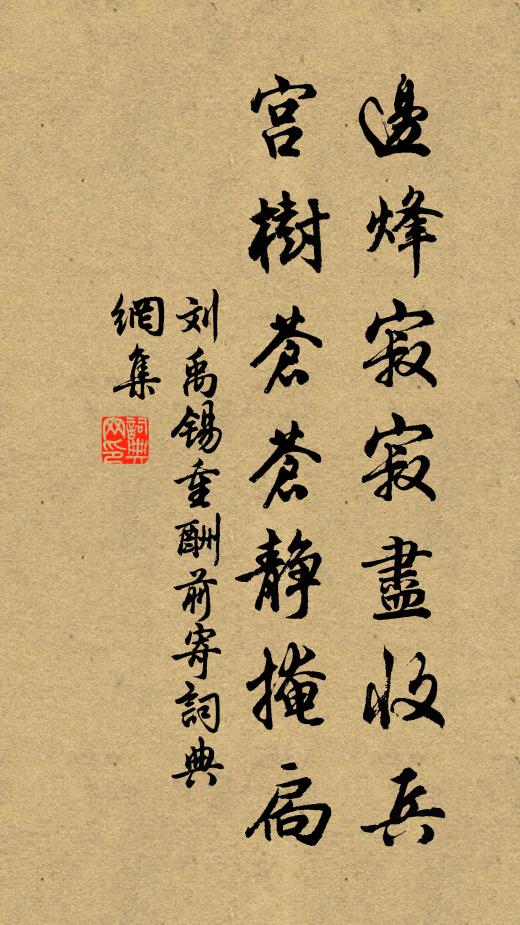 邊烽寂寂盡收兵
宮樹蒼蒼静掩扃
刘禹锡重酬前寄詞典
網集
詞典
网印